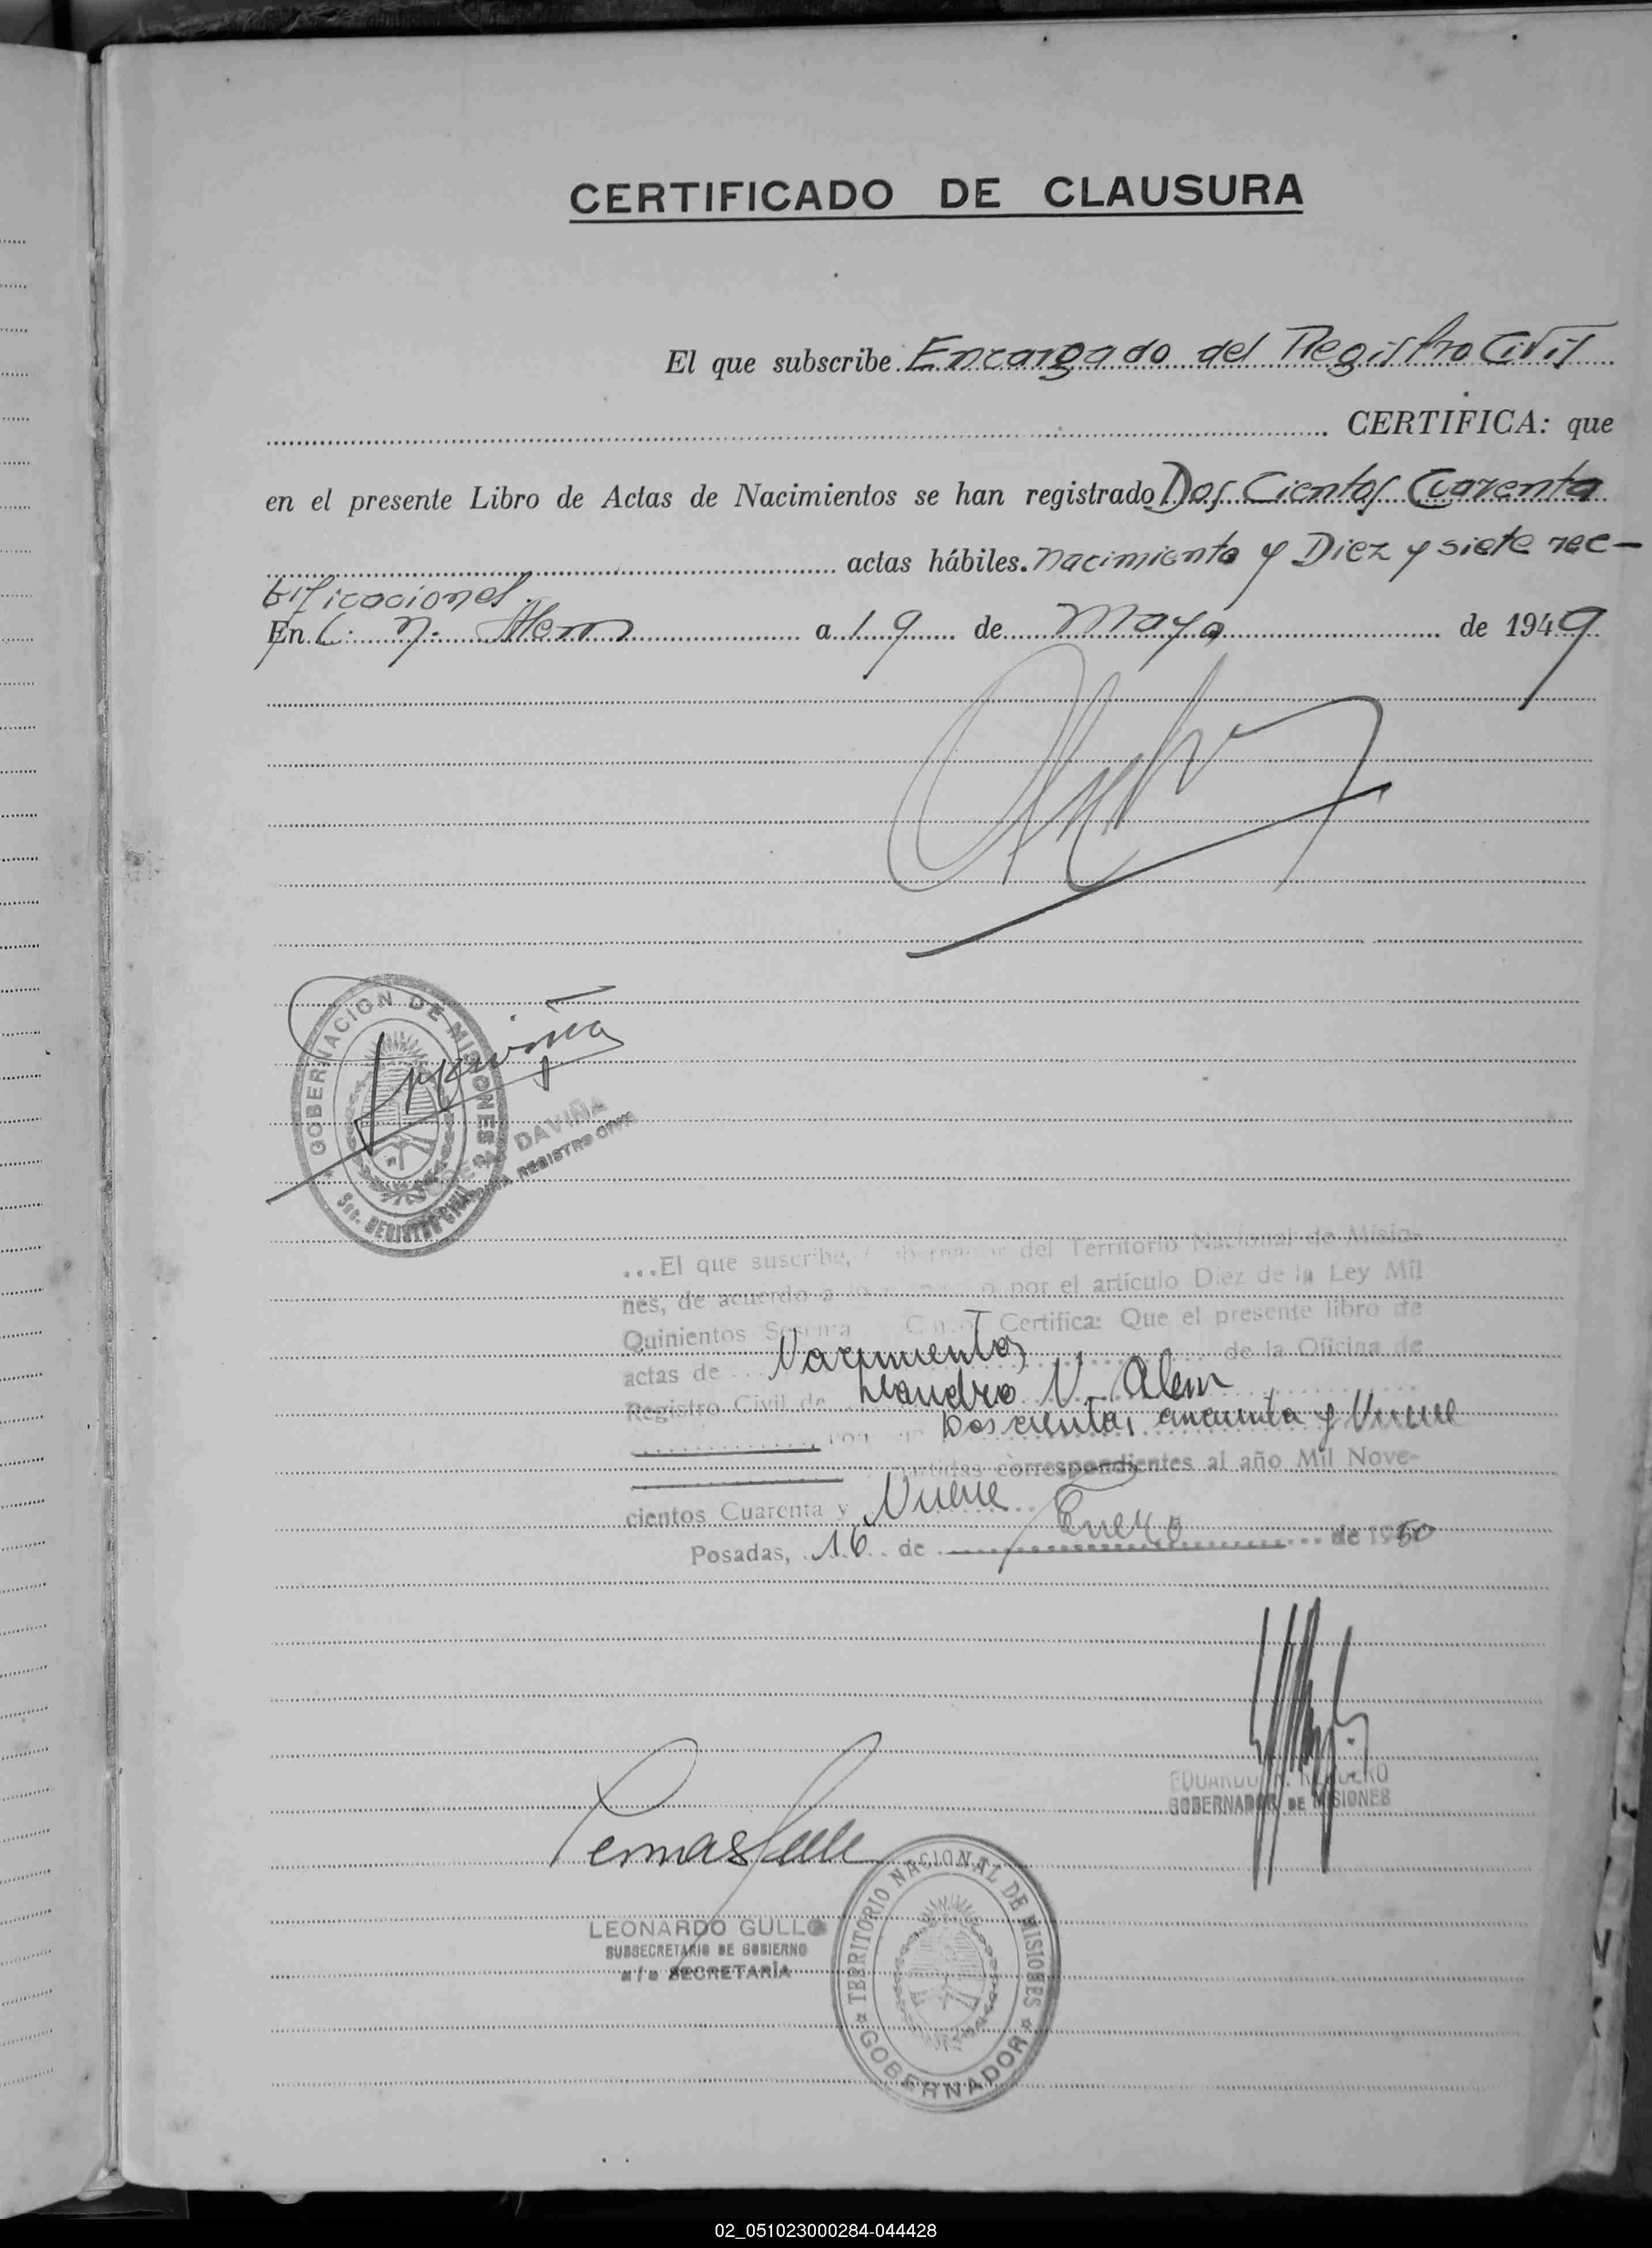 CERTIFICADO DE CLAUSURA
El que subscribe Encargado del Registro Civil
CERTIFICA: que
en el presente Libro de Actas de Nacimientos se han registrado Dos Cientos Cuarenta
actas hábiles. nacimiento y Diez y siete rec-
tificaciones.
En L. N. Alem a 19 de Mayo de 1949
GOBERNACION DE MISIONES
DAVIÑA
REGISTRO CIVIL
Sec. REGISTRO CIVIL
...El que suscribe, Gobernador del Territorio Nacional de Misio-
nes, de acuerdo a por el artículo Diez de la Ley Mil
Quinientos Sesenta Certifica: Que el presente libro de
actas de Nacimientos de la Oficina de
Registro Civil de Leandro N. Alem
Doscientas cincuenta y Nueve
partidas correspondientes al año Mil Nove-
cientos Cuarenta y Nueve
Posadas, 16 de Enero de 1950
GOBERNADOR DE MISIONES
LEONARDO GULLO
SUBSECRETARIO DE GOBIERNO
a/c SECRETARÍA
TERRITORIO NACIONAL DE MISIONES
GOBERNADOR
02_051023000284-044428